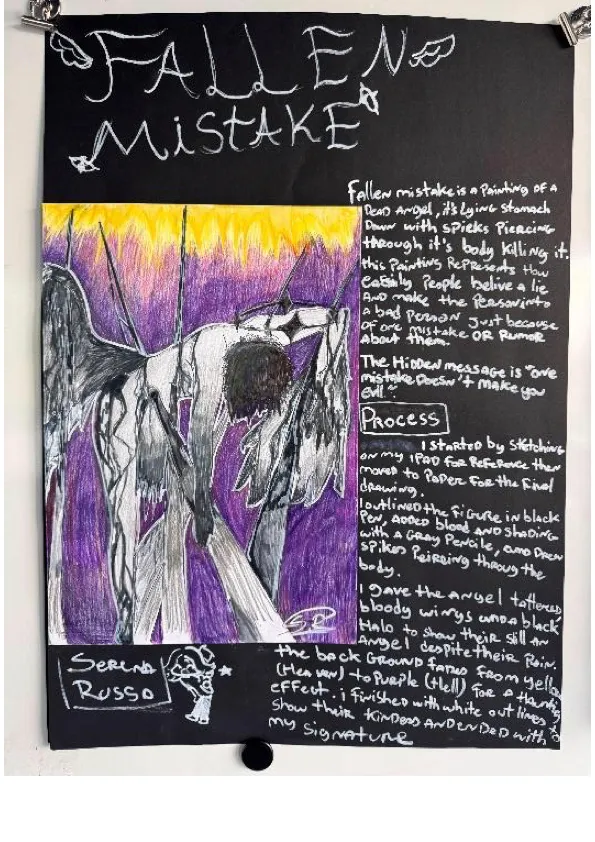 FALLEN
MiSTAKE
Fallen mistake is a Painting OF A
DEAD ANgel, it's Lying Stomach
Down with spieks Piercing
through it's body killing it.
this Painting RePResents How
eatsily People belive a lie
AND make the Person into
a bad Person Just because
of one mistake OR Rumor
About them.
The Hidden message is "one
mistake Doesn't make you
evil"
Process
I started by Sketching
on my IPAD for Reference then
moved to PaPer for the Final
drawing.
I outlined the figure in black
Pen, ADDeD blooD AnD SHaDing
with a gray Pencile, and Drew
spikes Peirding througg the
body.
I gave the Angel tattered
bloody wings and a black
Halo to show their still An
Angel despite their Pain.
the back ground fades from yellow
(Heaven) to Purple (Hell) for a Haunting
effect. i finished with white out lines to
show their Kindess AnD enDeD with
my Signature
SR
SERENA
RUSSO